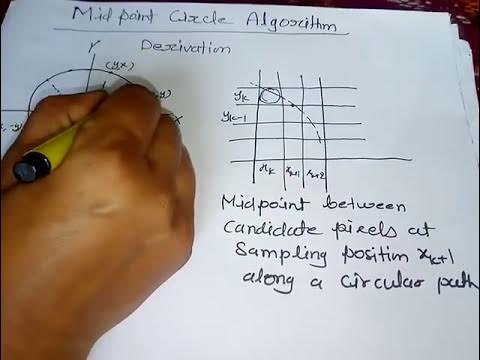 Midpoint Circle Algorithm
Derivation
Y
(y,x)
,y)
X
, -y)
yk
yk-1
xk xk+1 xk+2
Midpoint between
Candidate pixels at
Sampling position xk+1
along a circular path